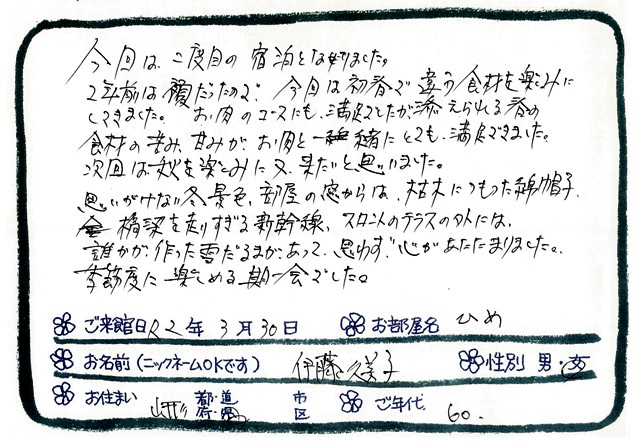 今回は、二度目の宿泊となりました。
2年前は夏だったので、今回は初春で違う食材を楽しみに
してきました。お肉のコースにも、満足でしたが、添えられる春の
食材の苦み、甘みが、お肉と一緒にとても、満足できました。
次回は秋を楽しみに又、来たいと思いました。
思いがけない冬景色、部屋の窓からは、枯木につもった綿帽子、
橋梁を走りすぎる新幹線、フロントのテラスの外には、
誰かが作った雪だるまがあって、思わず心があたたまりました。
季節度に楽しめる期一会でした。
ご来館日 R2年 3月30日 お部屋名 ひめ
お名前(ニックネームOKです) 伊藤久美子 性別 男・女
お住まい 山形 都道府県 市区 ご年代 60.